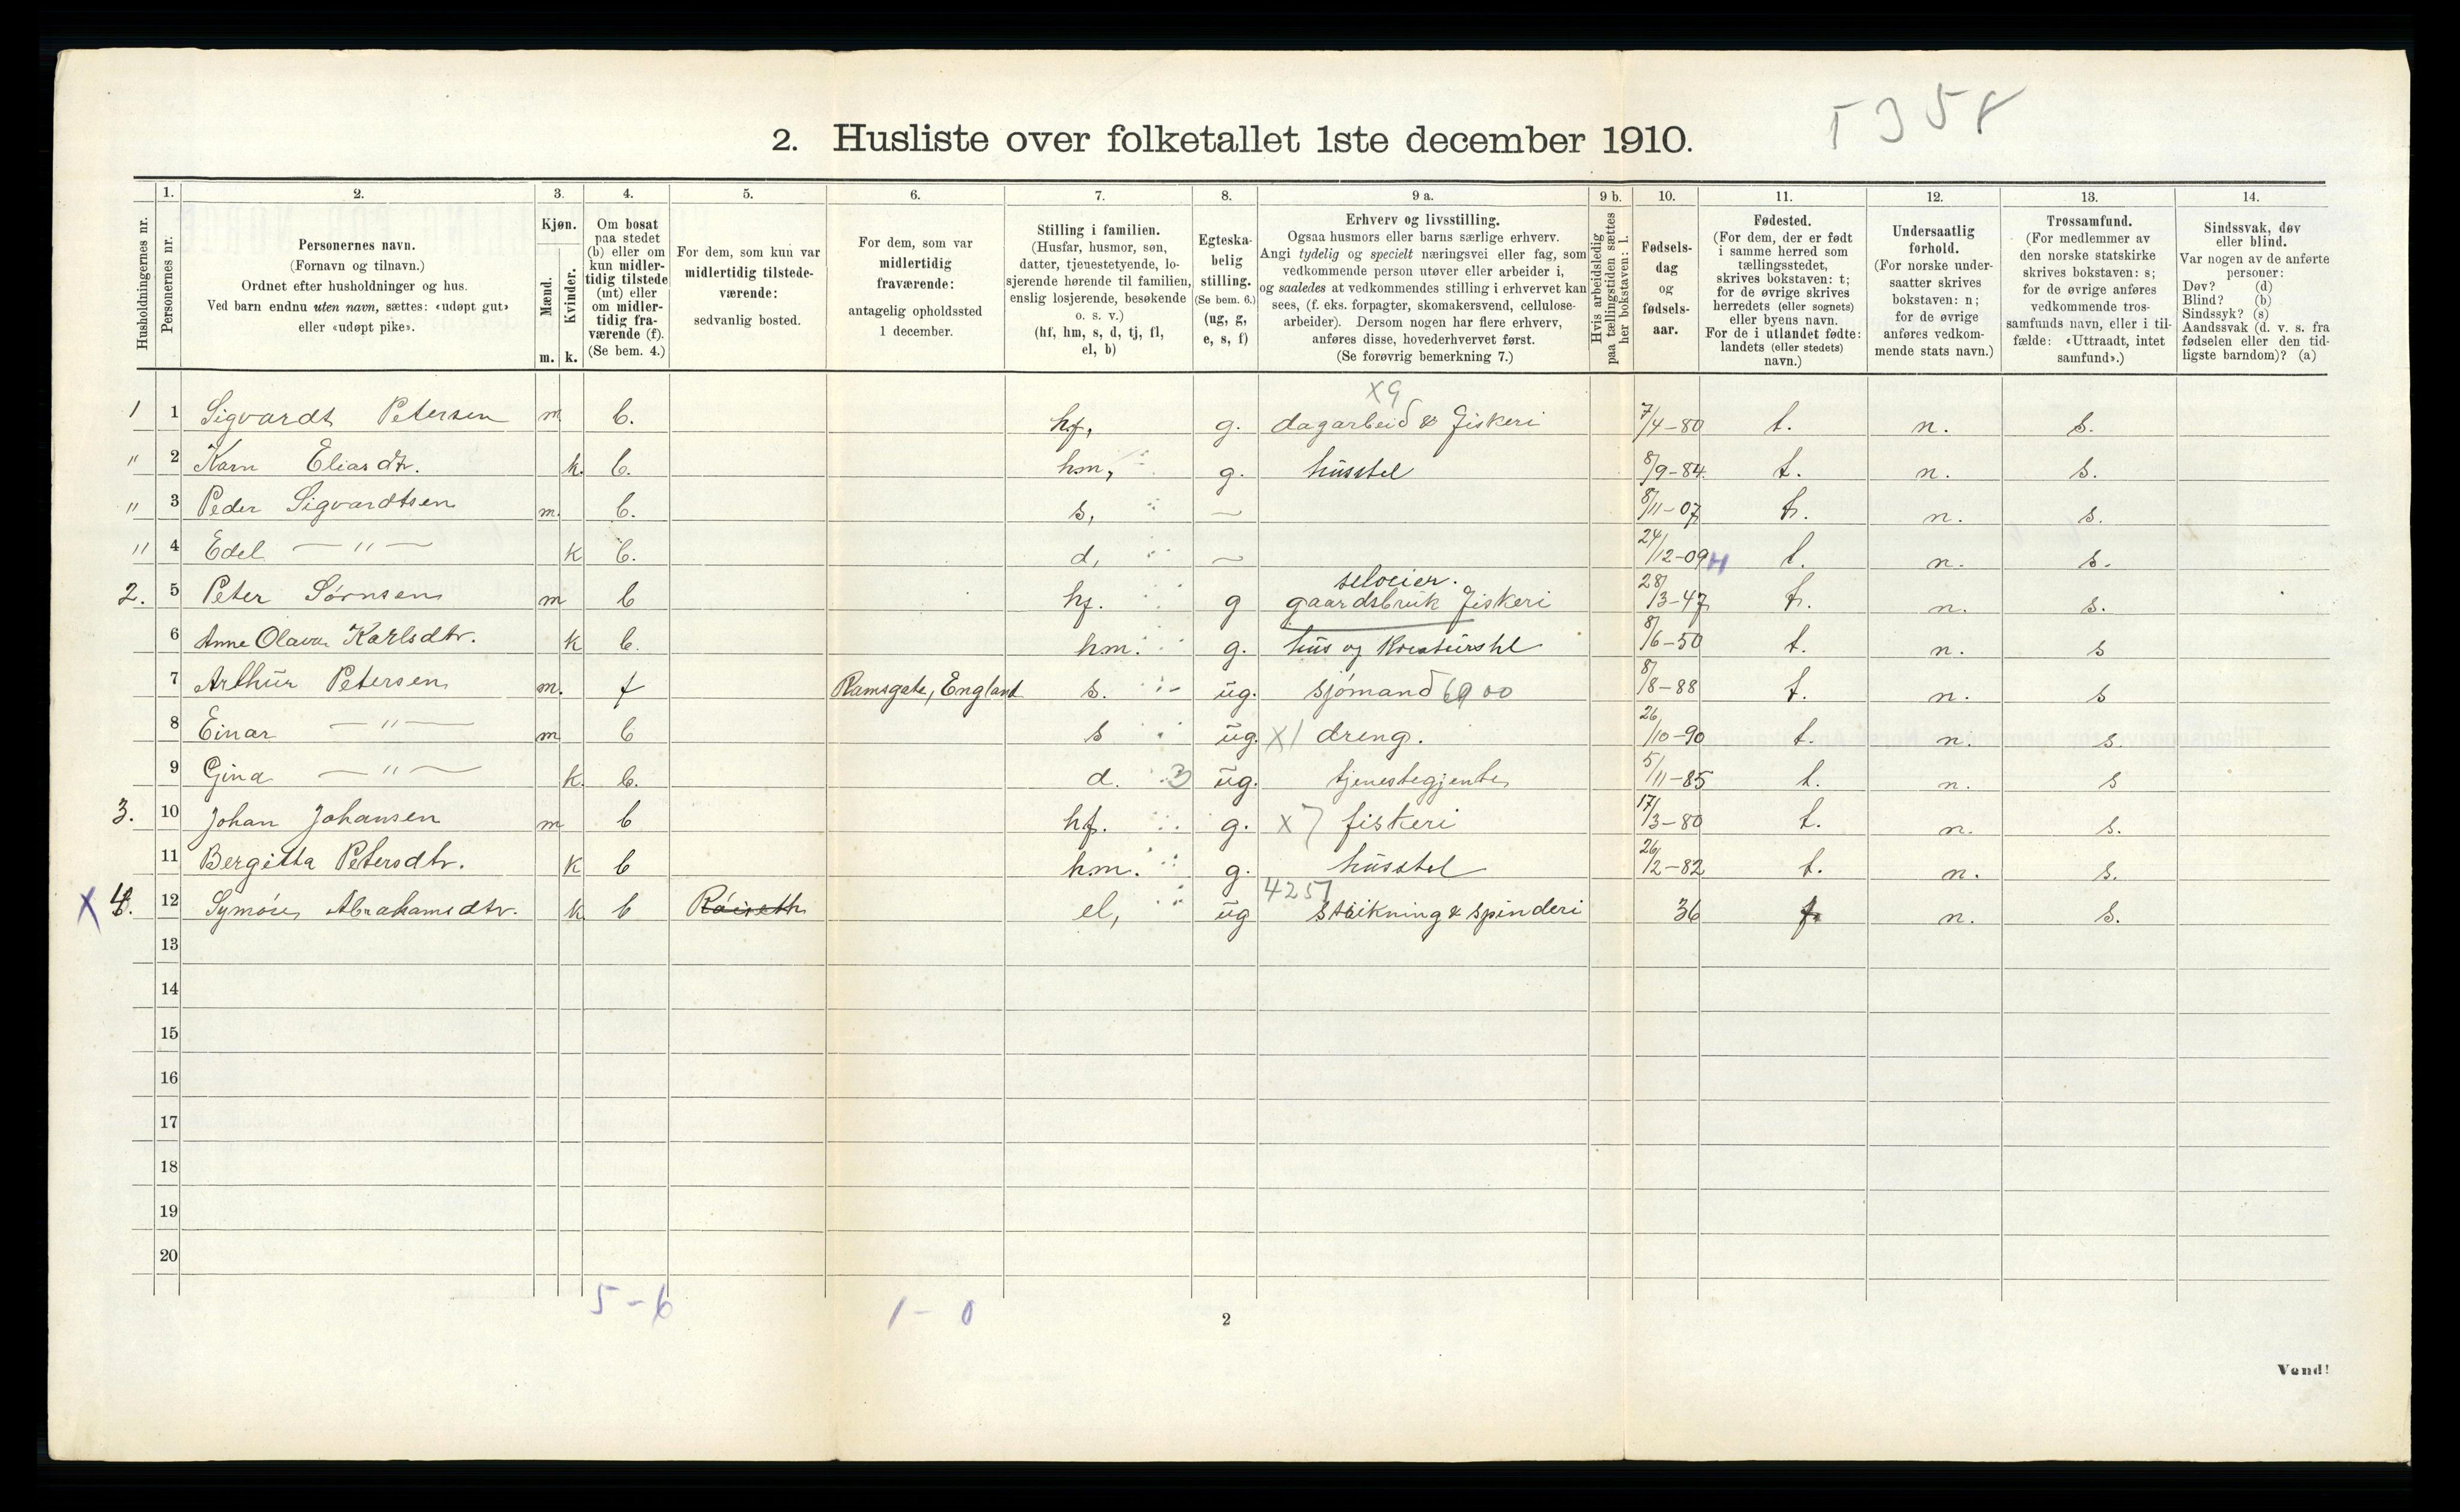 5358
2. Husliste over folketallet 1ste december 1910.
Husholdningernes nr.
1. Personernes nr.
2. Personernes navn. (Fornavn og tilnavn.) Ordnet efter husholdninger og hus. Ved barn endnu uten navn, sættes: «udøpt gut» eller «udøpt pike».
3. Kjøn. Mænd. m. Kvinder. k.
4. Om bosat paa stedet (b) eller om kun midlertidig tilstede (mt) eller om midlertidig fraværende (f). (Se bem. 4.)
5. For dem, som kun var midlertidig tilstedeværende: sedvanlig bosted.
6. For dem, som var midlertidig fraværende: antagelig opholdssted 1 december.
7. Stilling i familien. (Husfar, husmor, søn, datter, tjenestetyende, losjerende hørende til familien, enslig losjerende, besøkende o. s. v.) (hf, hm, s, d, tj, fl, el, b)
8. Egteskabelig stilling. (Se bem. 6.) (ug, g, e, s, f)
9 a. Erhverv og livsstilling. Ogsaa husmors eller barns særlige erhverv. Angi tydelig og specielt næringsvei eller fag, som vedkommende person utøver eller arbeider i, og saaledes at vedkommendes stilling i erhvervet kan sees, (f. eks. forpagter, skomakersvend, cellulosearbeider). Dersom nogen har flere erhverv, anføres disse, hovederhvervet først. (Se forøvrig bemerkning 7.)
9 b. Hvis arbeidsledig paa tællingstiden sættes her bokstaven: l.
10. Fødselsdag og fødselsaar.
11. Fødested. (For dem, der er født i samme herred som tællingsstedet, skrives bokstaven: t; for de øvrige skrives herredets (eller sognets) eller byens navn. For de i utlandet fødte: landets (eller stedets) navn.)
12. Undersaatlig forhold. (For norske undersaatter skrives bokstaven: n; for de øvrige anføres vedkommende stats navn.)
13. Trossamfund. (For medlemmer av den norske statskirke skrives bokstaven: s; for de øvrige anføres vedkommende trossamfunds navn, eller i tilfælde: «Uttraadt, intet samfund».)
14. Sindssvak, døv eller blind. Var nogen av de anførte personer: Døv? (d) Blind? (b) Sindssyk? (s) Aandssvak (d. v. s. fra fødselen eller den tidligste barndom)? (a)
X9
1 1 Sigvardt Petersen m b. hf, g. dagarbeid & fiskeri 7/4-80 t. n. s.
" 2 Karn Eliasdtr. k. b. hm, g. husstel 8/9-84. t. n. s.
" 3 Peder Sigvardtsen m. b. s, — 8/11-07 t. n. s.
" 4 Edel — " — k b. d, — 24/12-09 H t. n. s.
selveier.
2. 5 Peter Sørnsen m b hf. g gaardsbruk fiskeri 28/3-47 t. n. s.
6 Anne Olava Karlsdtr. k b. hm. g. hus og kreaturstel 8/6-50 t. n. s
7 Arthur Petersen m. f Ramsgate, England s. ug. sjømand 6900 8/8-88 t. n. s
8 Einar — " — m b s ug. X1 dreng. 26/10-90 t. n. s.
9 Gina — " — k. b. d. 3 ug. tjenestegjente 5/11-85 t. n. s
3. 10 Johan Johansen m b hf. g. X7 fiskeri 17/3-80 t. n. s.
11 Bergitta Petersdtr. k b hm. g. husstel 26/2-82 t. n. s.
4257
X 4. 12 Abrahamsdtr. k b Røiseth el, ug strikning & spinderi 36 t. n. s.
13
14
15
16
17
18
19
20
5-6 1-0
2
Vend!